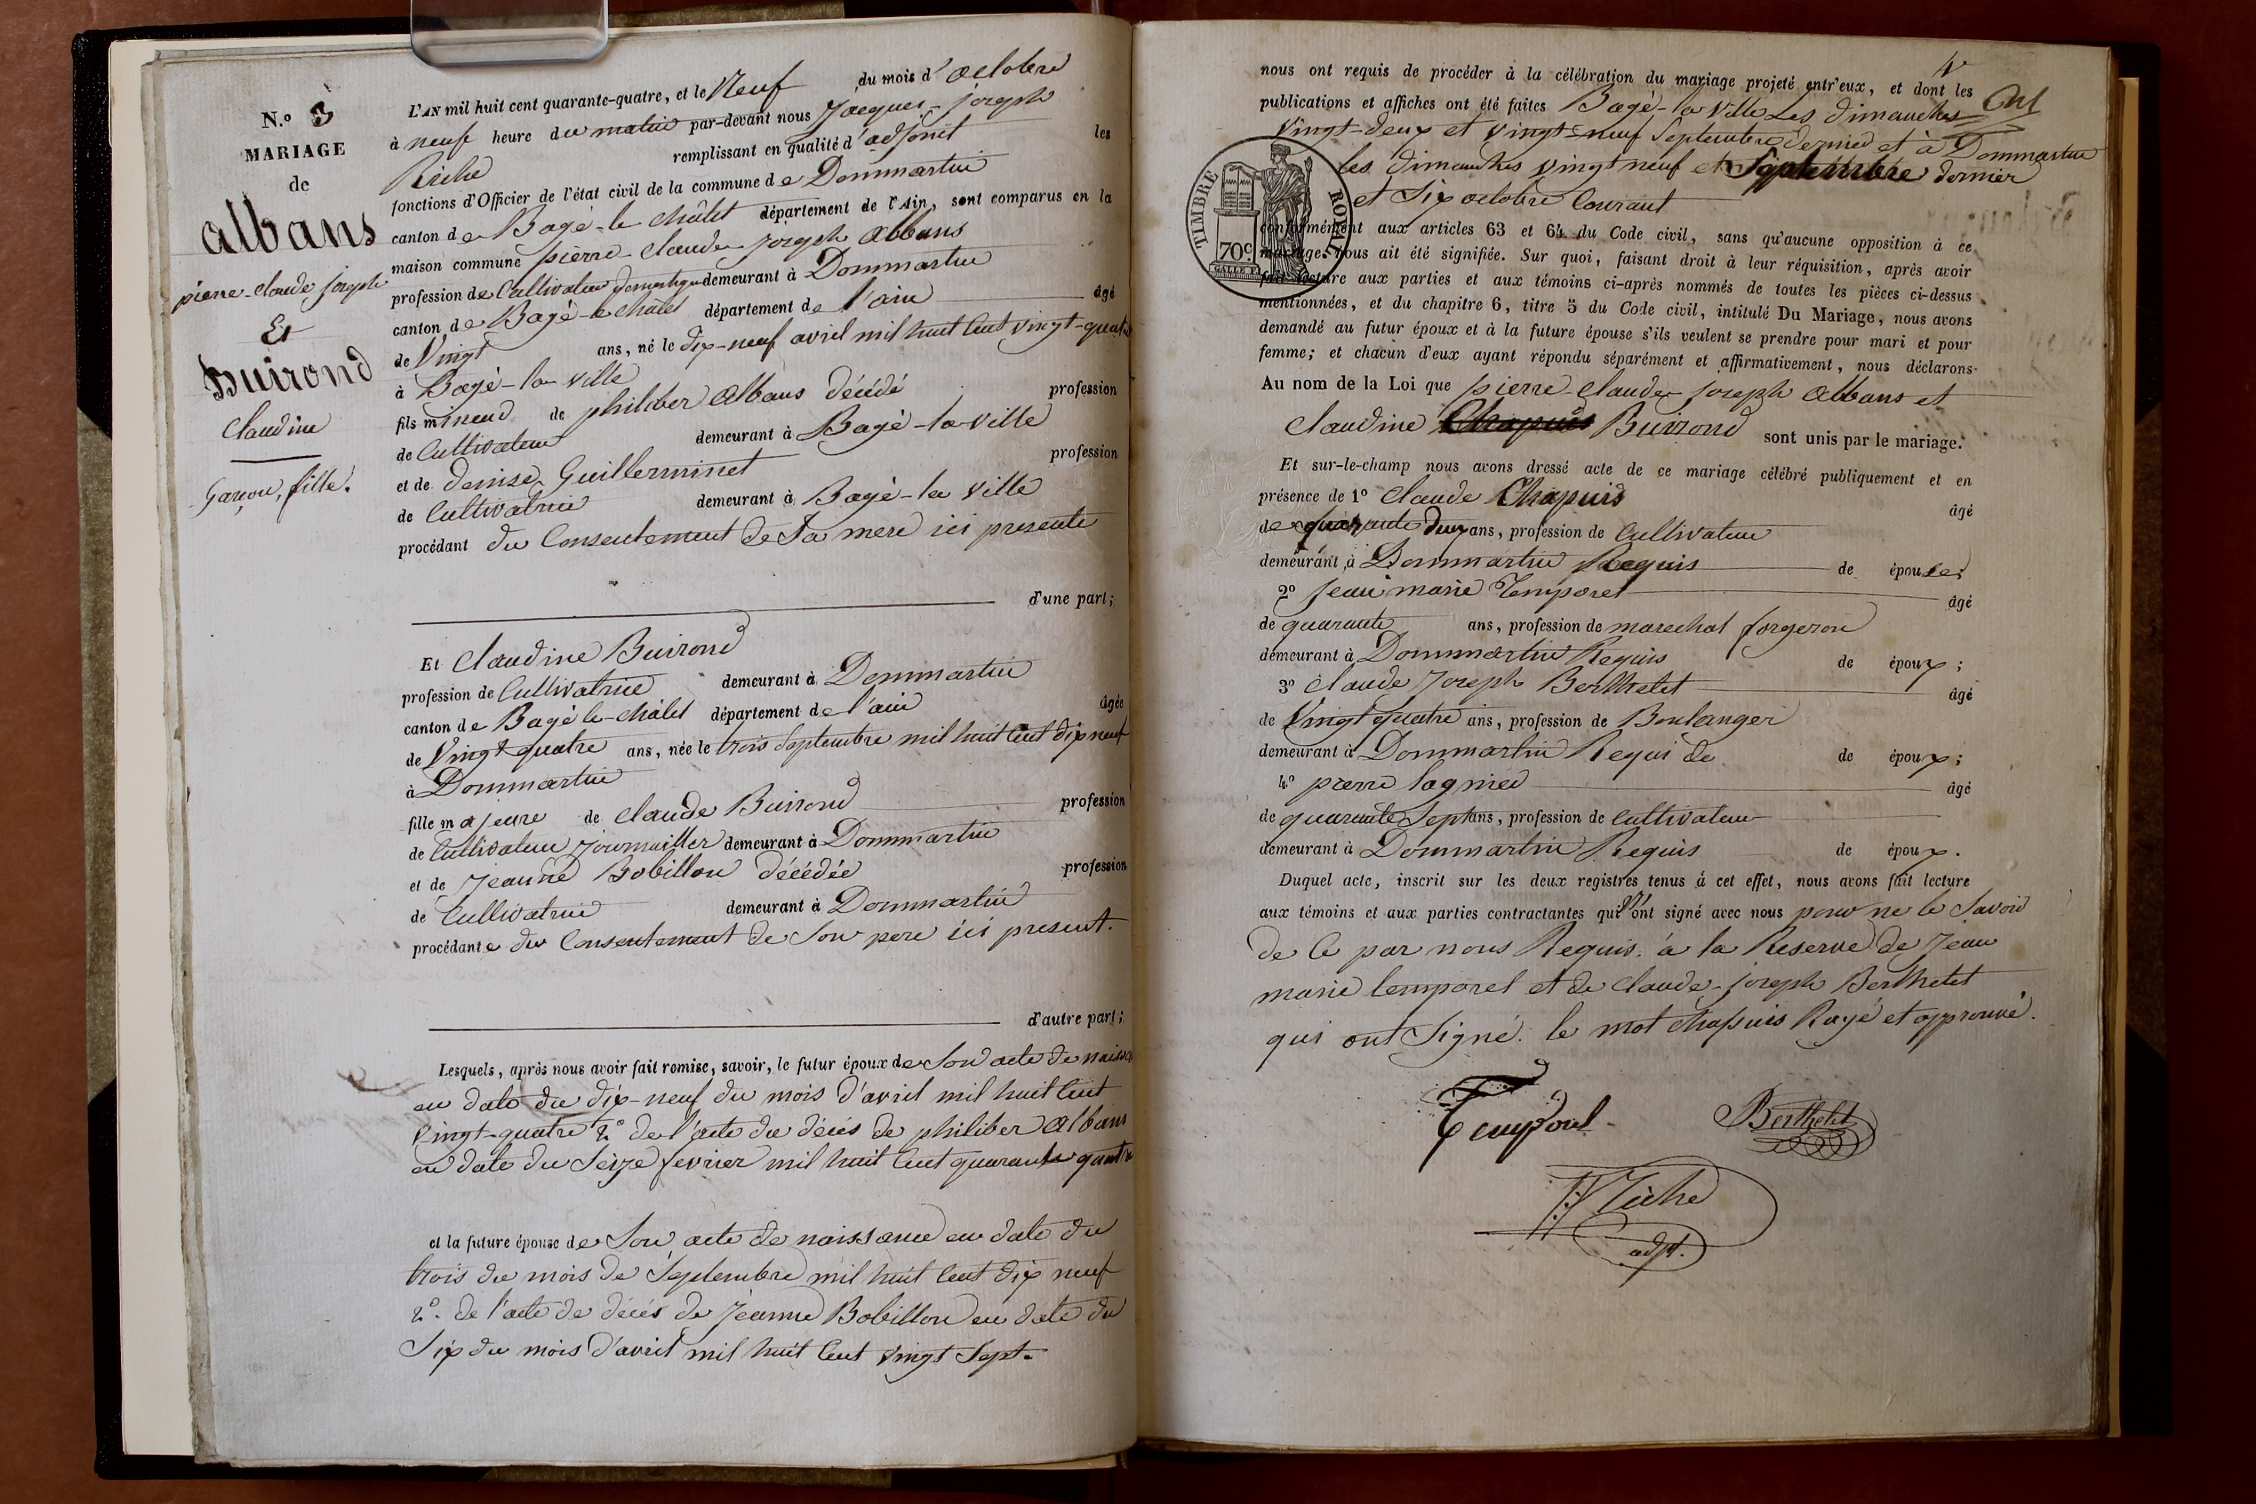 N.o 3
MARIAGE
de
Albans
pierre-claude joseph
Et
Buirond
Claudine
Garçon, fille.
L'AN mil huit cent quarante-quatre, et le Neuf du mois d'octobre
à neuf heure du matin par-devant nous Jacques-joseph
Riche remplissant en qualité d'adjoint les
fonctions d'Officier de l'état civil de la commune de Dommartin
canton de Bagé-le-châtel département de l'Ain, sont comparus en la
maison commune pierre-claude-joseph Albans
profession de Cultivateur domestique demeurant à Dommartin
canton de Bagé-le-châtel département de l'ain âgé
de Vingt ans, né le dix-neuf avril mil huit Cent vingt-quatre
à Bagé-la-ville
fils mineur de philiber Albans décédé profession
de Cultivateur demeurant à Bagé-la-ville
et de denise Guillerminet profession
de Cultivatrice demeurant à Bagé-la ville
procédant du Consentement de Sa mere ici presente
d'une part;
Et Claudine Buirond
profession de Cultivatrice demeurant à Dommartin
canton de Bagé le-châtel département de l'ain âgée
de Vingt quatre ans, née le trois Septembre mil huit Cent dix neuf
à Dommartin
fille majeure de Claude Buirond profession
de Cultivateur journaillier demeurant à Dommartin
et de Jeanne Bobillon décédée profession
de Cultivatrice demeurant à Dommartin
procédante du Consentement de Son pere ici present.
d'autre part;
Lesquels, après nous avoir fait remise, savoir, le futur époux de Son acte de naissa
en date du dix-neuf du mois d'avril mil huit Cent
Vingt-quatre 2° de l'acte du décés de philiber Albans
en date du Seize fevrier mil huit Cent quarante quatre
et la future épouse de Son acte de naissance en date du
trois du mois de Septembre mil huit Cent dix neuf
2°. de l'acte de décés de Jeanne Bobillon en date du
Six du mois d'avril mil huit Cent vingt Sept.
nous ont requis de procéder à la célébration du mariage projeté entr'eux, et dont les
publications et affiches ont été faites Bagé-la Ville Les dimanches
Vingt-deux et Vingt-neuf Septembre dernier et à Dommartin
les dimanches Vingt neuf et Septembre dernier
et Six octobre Courant
TIMBRE ROYAL
70c.
conformément aux articles 63 et 64 du Code civil, sans qu'aucune opposition à ce
mariage nous ait été signifiée. Sur quoi, faisant droit à leur réquisition, après avoir
fait lecture aux parties et aux témoins ci-après nommés de toutes les pièces ci-dessus
mentionnées, et du chapitre 6, titre 5 du Code civil, intitulé Du Mariage, nous avons
demandé au futur époux et à la future épouse s'ils veulent se prendre pour mari et pour
femme; et chacun d'eux ayant répondu séparément et affirmativement, nous déclarons
Au nom de la Loi que pierre-claude-joseph Albans et
Claudine Chapuis Buirond sont unis par le mariage.
Et sur-le-champ nous avons dressé acte de ce mariage célébré publiquement et en
présence de 1° Claude Chapuis âgé
de quarante deux ans, profession de Cultivateur
demeurant à Dommartin Requis de épouse;
2° Jean marie Temporel âgé
de quarante ans, profession de marechal forgeron
demeurant à Dommartin Requis de époux;
3° Claude Joseph Berthelet âgé
de Vingt quatre ans, profession de Boulanger
demeurant à Dommartin Requi de de époux;
4° pierre lagnier âgé
de quarante Sept ans, profession de Cultivateur
demeurant à Dommartin Requis de époux.
Duquel acte, inscrit sur les deux registres tenus à cet effet, nous avons fait lecture
aux témoins et aux parties contractantes qui n'ont signé avec nous pour ne le Savoir
de Ce par nous Requis. à la Reserve de Jean
marie temporel et de Claude-joseph Berthelet
qui ont Signé. le mot Chapuis Rayé et approuvé.
Temporel
Berthelet
Riche
adjt.